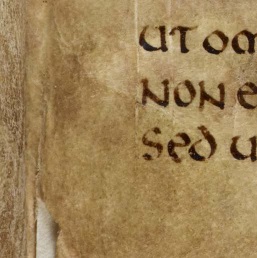 ut om
non e
sed u